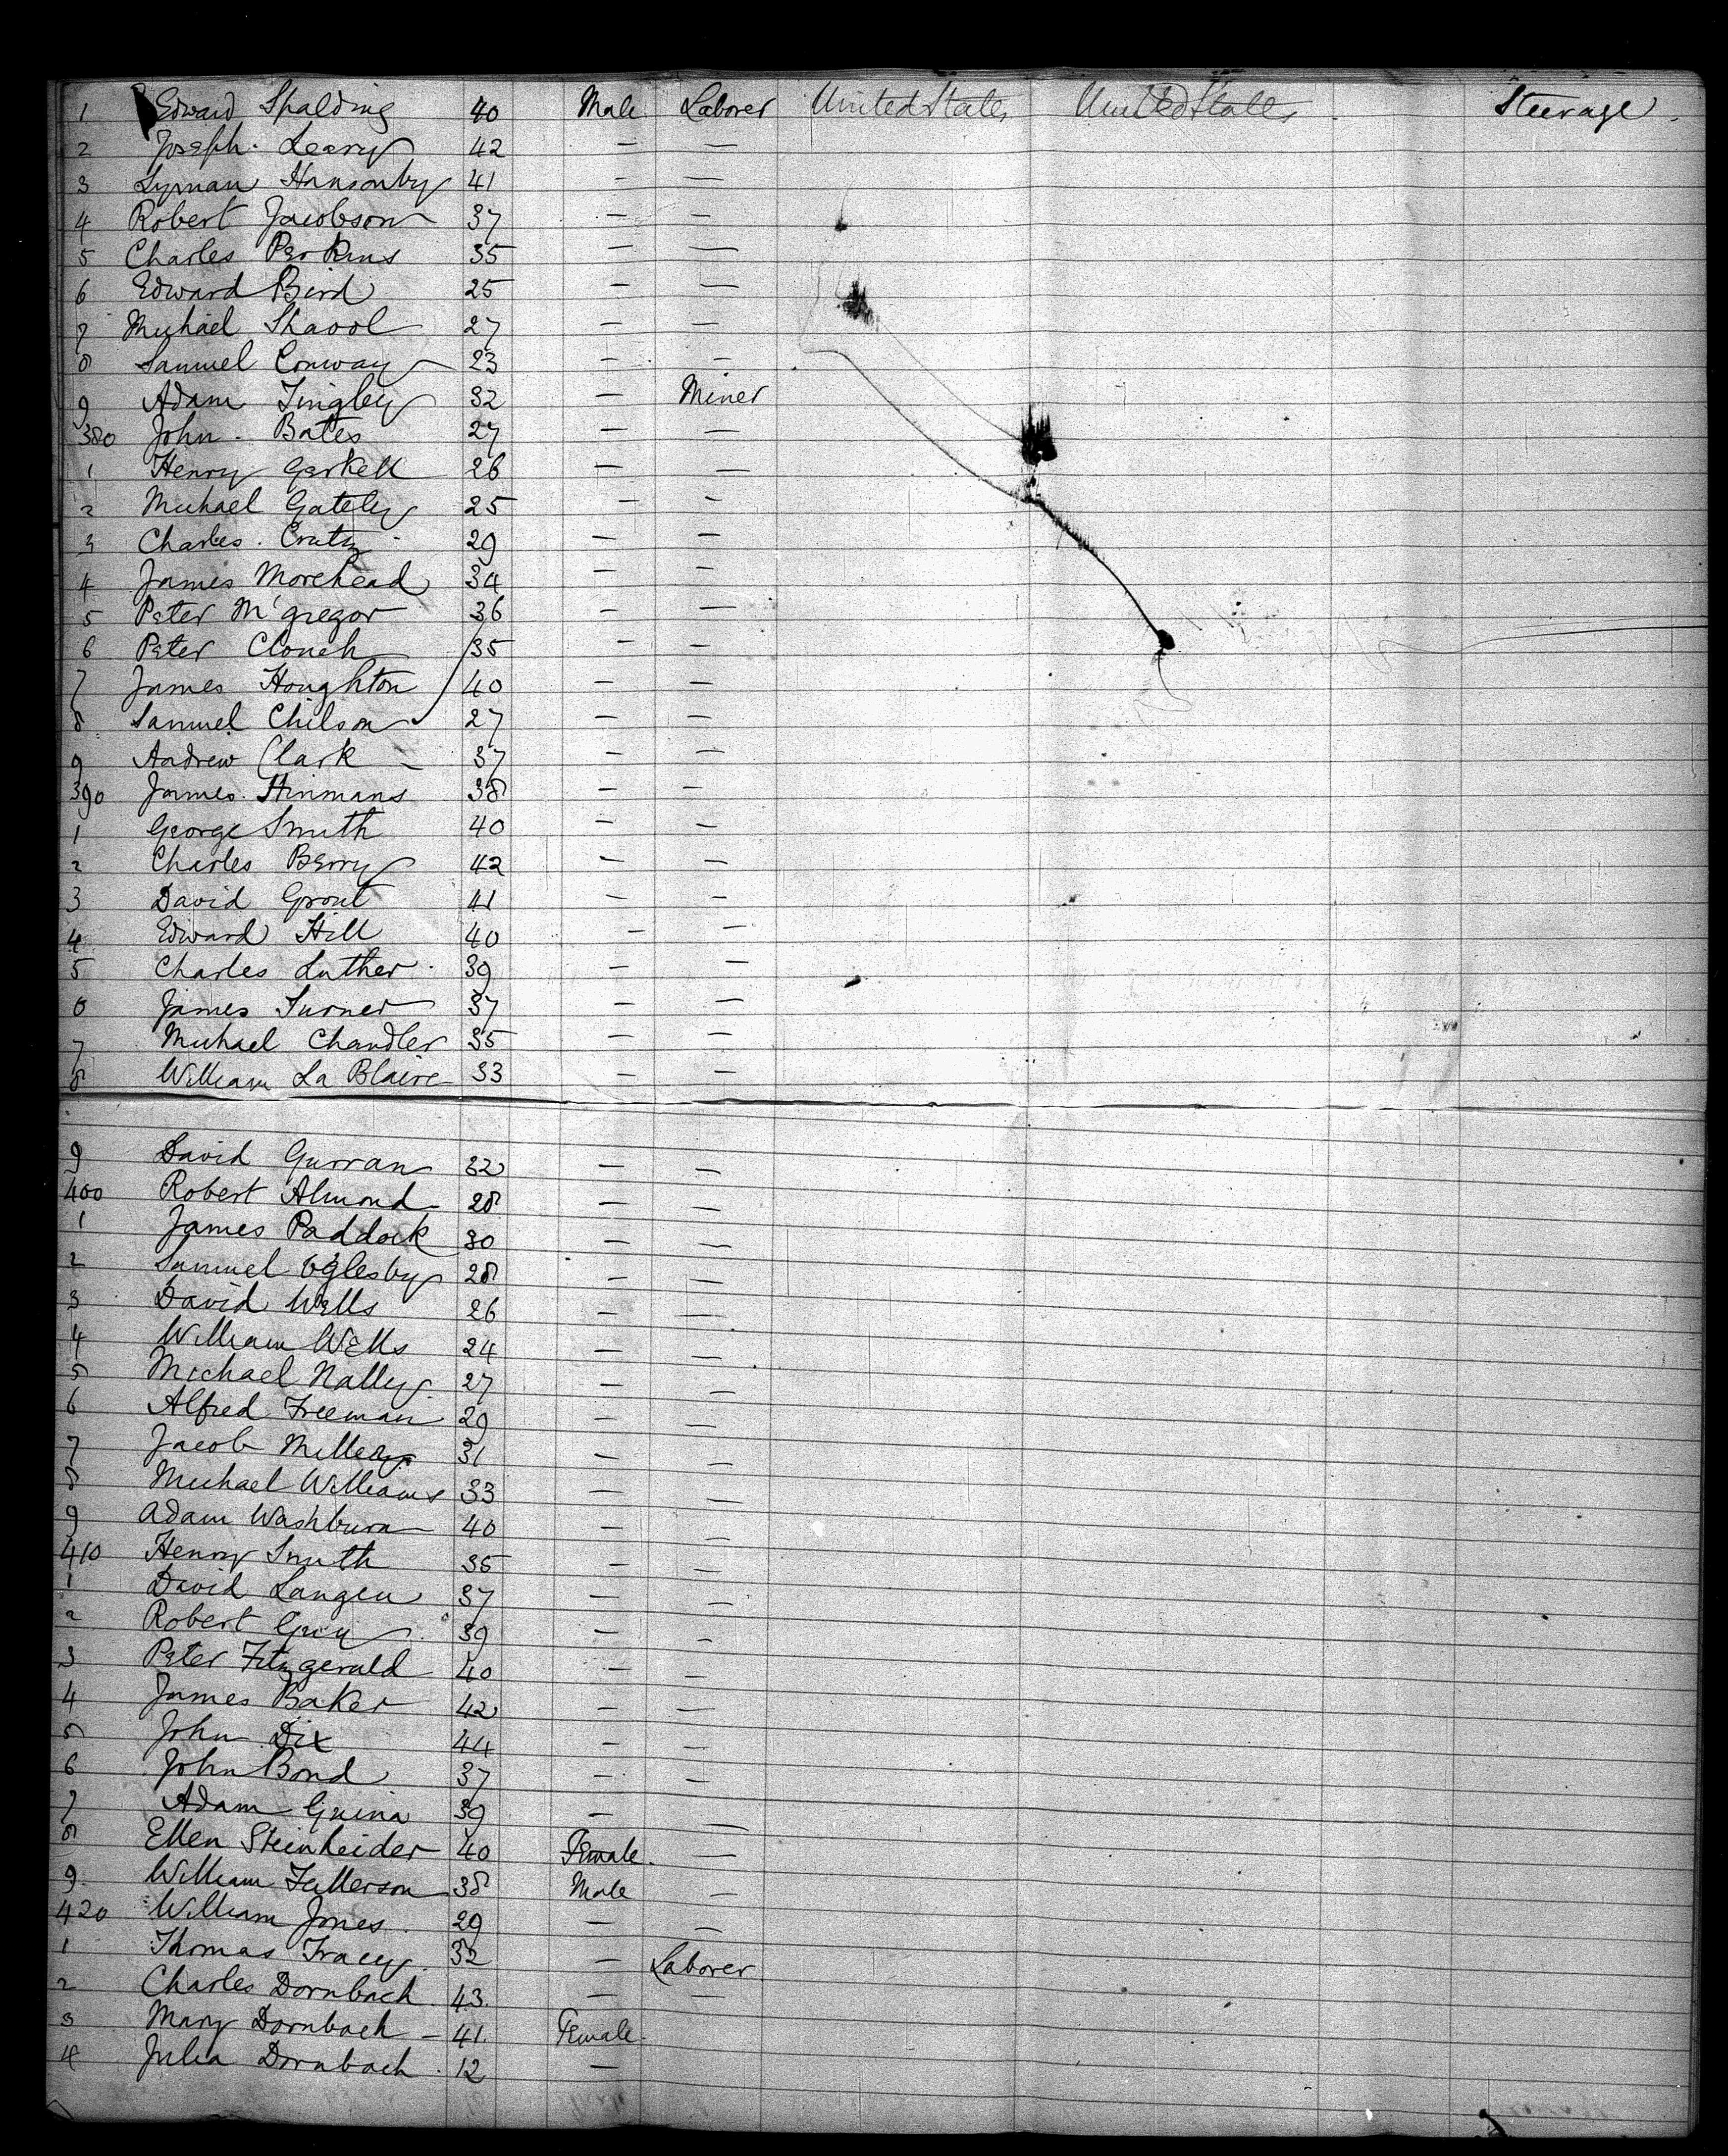 1 Edward Spalding 40 Male Laborer United States United States Steerage
2 Joseph Leary 42 — —
3 Lyman Hansonby 41 — —
4 Robert Jacobson 37 — —
5 Charles Perkins 35 — —
6 Edward Bird 25 — —
7 Michael Shaool 27 — —
8 Samuel Conway 23 — —
9 Adam Tingley 32 — Miner
380 John Bates 27 — —
1 Henry Gaskell 26 — —
2 Michael Gately 25 — —
3 Charles 29 — —
4 James Morehead 34 — —
5 Peter McGregor 36 — —
6 Peter Clouch 35 — —
7 James Houghton 40 — —
8 Samuel Chilson 27 — —
9 Andrew Clark 37 — —
390 James Hinmans 38 — —
1 George Smith 40 — —
2 Charles Berry 42 — —
3 David Grout 41 — —
4 Edward Hill 40 — —
5 Charles Luther 39 — —
6 James Turner 37 — —
7 Michael Chandler 35 — —
8 William La Blaire 33 — —
9 David Gurran 32 — —
400 Robert Almond 28 — —
1 James Paddock 30 — —
2 Samuel Oglesby 28 — —
3 David Wells 26 — —
4 William Wells 24 — —
5 Michael Nally 27 — —
6 Alfred Freeman 29 — —
7 Jacob 31 — —
8 Michael Williams 33 — —
9 Adam Washburn 40 — —
410 Henry Smith 35 — —
1 David Langen 37 — —
2 Robert 39 — —
3 Peter Fitzgerald 40 — —
4 James Baker 42 — —
5 John Dix 44 — —
6 John Bond 37 — —
7 Adam Guina 39 — —
8 Ellen Steinheider 40 Female —
9 William Fullerson 38 Male —
420 William Jones 29 — —
1 Thomas Tracey 32 — Laborer
2 Charles Dornbach 43 — —
3 Mary Dornbach 41 Female
4 Julia Dornbach 12 —